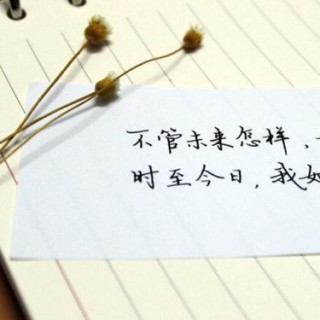 不管未来怎样、
时至今日，我如